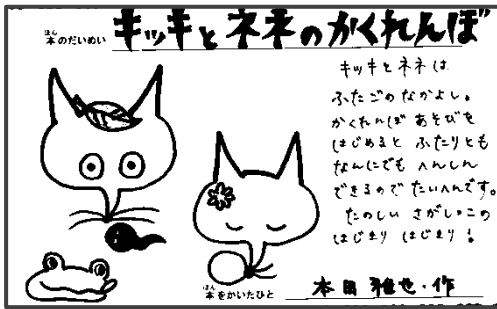 ほん
本のだいめい キッキとネネのかくれんぼ
キッキとネネは
ふたごのなかよし。
かくれんぼ あそびを
はじめると ふたりとも
なんにでも へんしん
できるので たいへんです。
たのしい さがしっこの
はじまり はじまり!
ほん
本をかいたひと 本田雅也・作